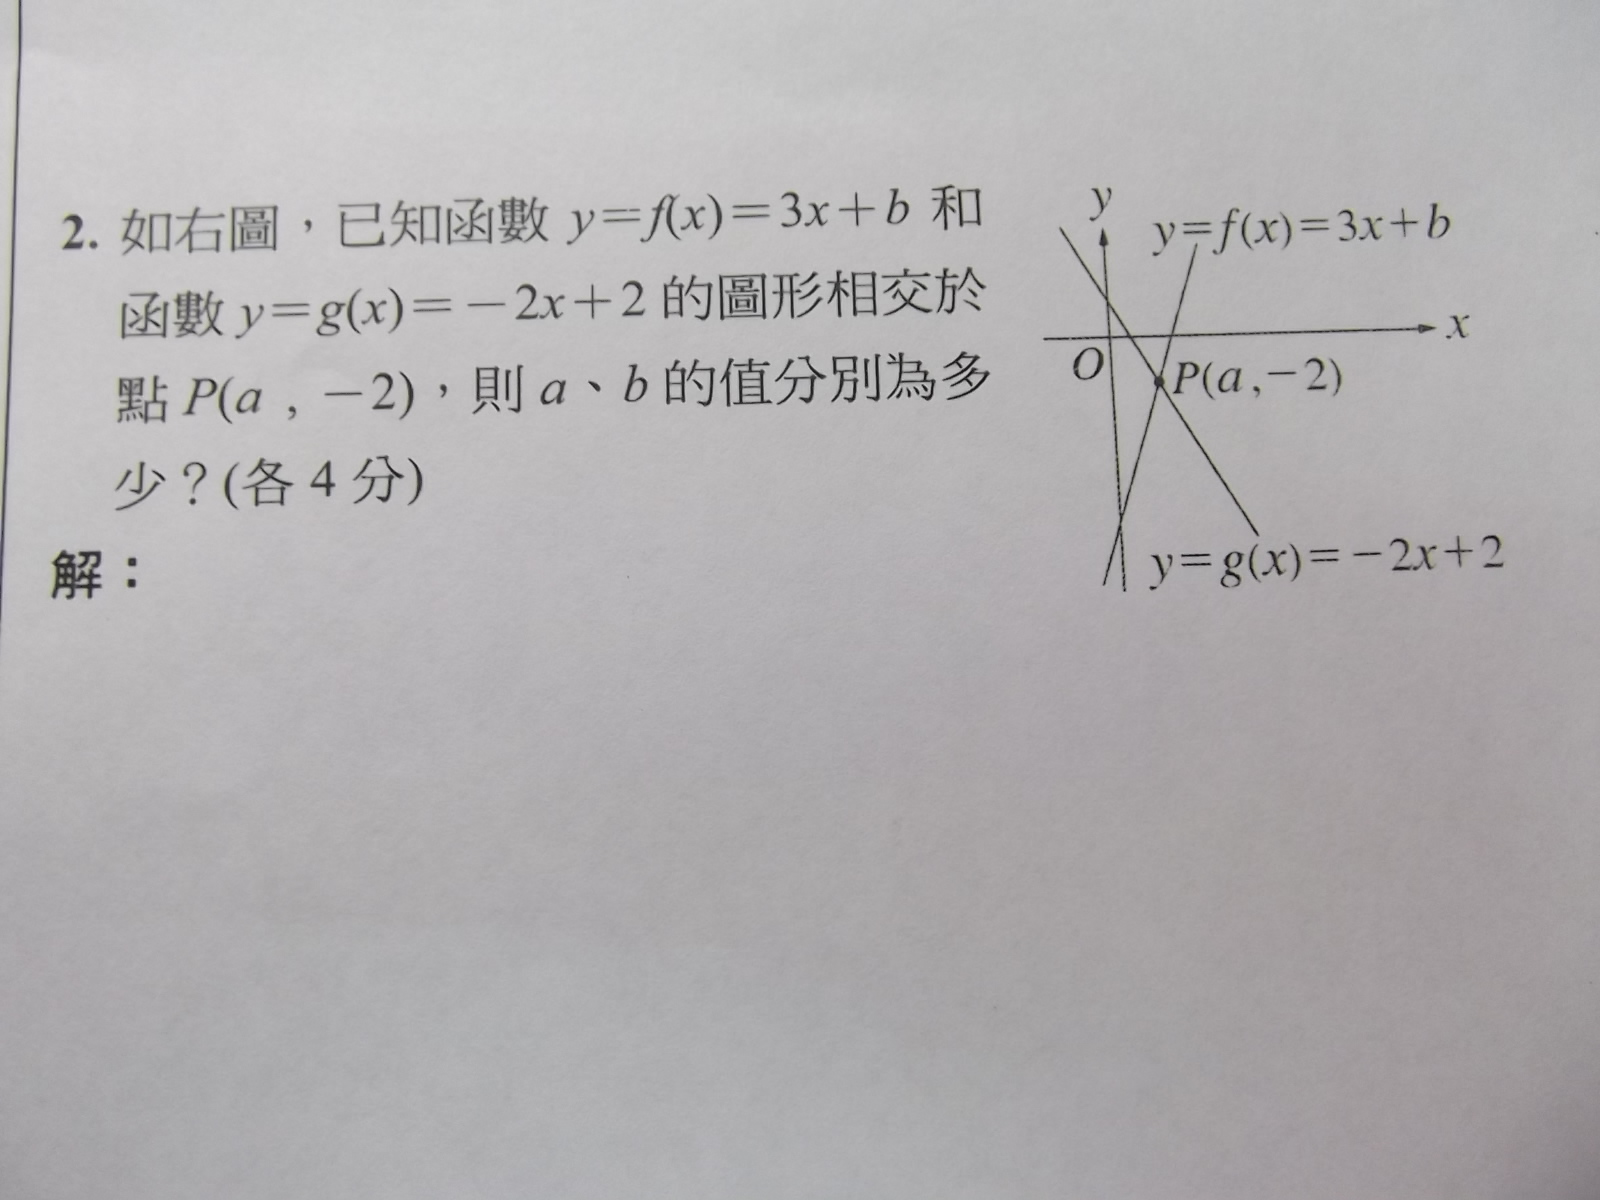 2. 如右圖，已知函數 y=f(x)=3x+b 和
函數 y=g(x)=－2x+2 的圖形相交於
點 P(a , －2)，則 a、b 的值分別為多
少？(各 4 分)
解：
y
y=f(x)=3x+b
x
O
P(a,－2)
y=g(x)=－2x+2